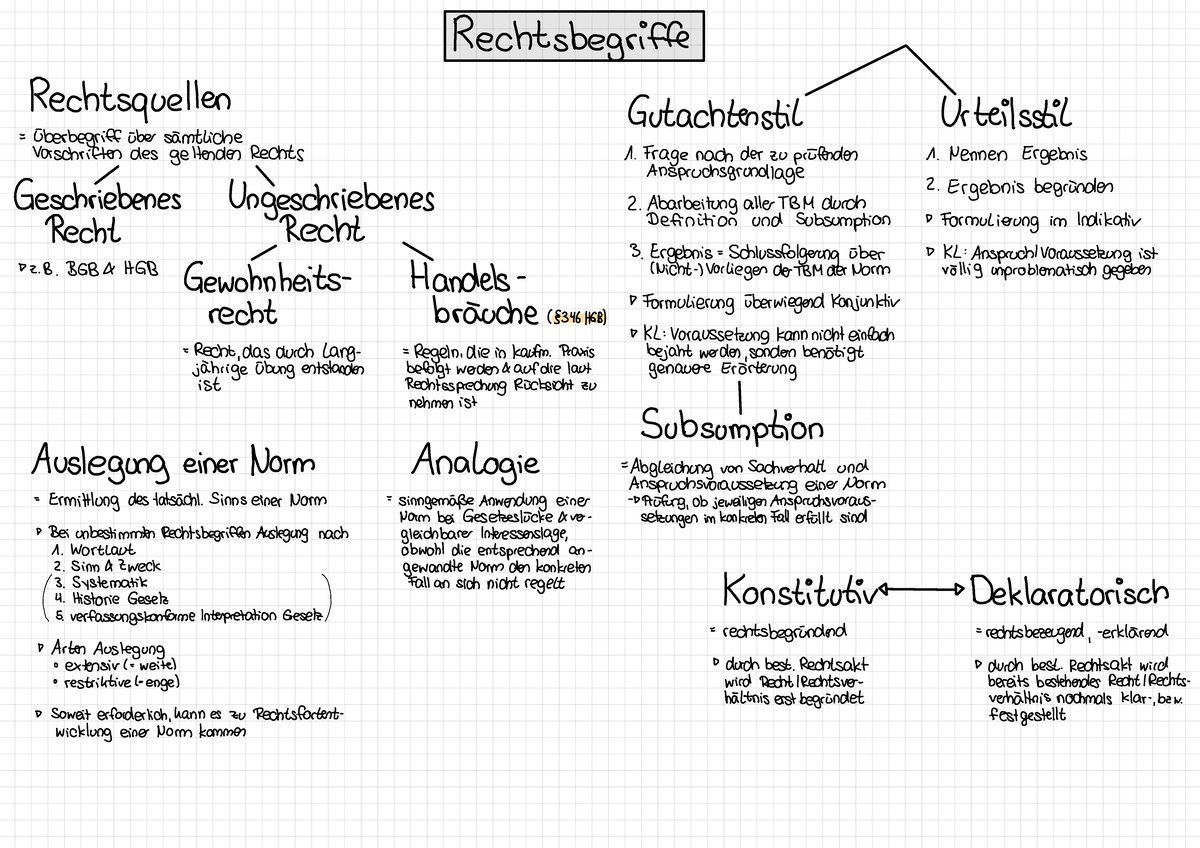 Rechtsbegriffe
Rechtsquellen
= Überbegriff über sämtliche
Vorschriften des geltenden Rechts
Geschriebenes
Recht
▷ z.B. BGB & HGB
Ungeschriebenes
Recht
Gewohnheits-
recht
= Recht, das durch lang-
jährige Übung entstanden
ist
Handels-
bräuche (§346 HGB)
= Regeln, die in kaufm. Praxis
befolgt werden & auf die laut
Rechtssprechung Rücksicht zu
nehmen ist
Gutachtenstil
1. Frage nach der zu prüfenden
Anspruchsgrundlage
2. Abarbeitung aller TBM durch
Definition und Subsumption
3. Ergebnis = Schlussfolgerung über
(Nicht-) Vorliegen der TBM der Norm
▷ Formulierung überwiegend Konjunktiv
▷ KL: Voraussetzung kann nicht einfach
bejaht werden, sonden benötigt
genauere Erörterung
Urteilsstil
1. Nennen Ergebnis
2. Ergebnis begründen
▷ Formulierung im Indikativ
▷ KL: Anspruch/Voraussetzung ist
völlig unproblematisch gegeben
Subsumption
= Abgleichung von Sachverhalt und
Anspruchsvoraussetzung einer Norm
-▷ Prüfung, ob jeweiligen Anspruchsvoraus-
setzungen im konkreten Fall erfüllt sind
Auslegung einer Norm
= Ermittlung des tatsächl. Sinns einer Norm
▷ Bei unbestimmten Rechtsbegriffen Auslegung nach
1. Wortlaut
2. Sinn & Zweck
(3. Systematik
4. Historie Gesetz
5. verfassungskonforme Interpretation Gesetz)
▷ Arten Auslegung
• extensiv (= weite)
• restriktive (= enge)
▷ Soweit erforderlich, kann es zu Rechtsfortent-
wicklung einer Norm kommen
Analogie
= sinngemäße Anwendung einer
Norm bei Gesetzeslücke & ver-
gleichbarer Interessenslage,
obwohl die entsprechend an-
gewandte Norm den konkreten
Fall an sich nicht regelt
Konstitutiv
= rechtsbegründend
▷ durch best. Rechtsakt
wird Recht/Rechtsver-
hältnis erst begründet
Deklaratorisch
= rechtsbezeugend, -erklärend
▷ durch best. Rechtsakt wird
bereits bestehendes Recht/Rechts-
verhältnis nochmals klar-, bzw.
festgestellt